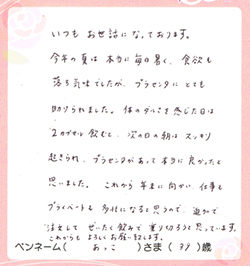 いつも お世話に なって おります。
今年の夏は 本当に 毎日暑く、食欲も
落ち気味でしたが、プラセンタに とても
助けられました。体のダルさを 感じた日は
2カプセル 飲むと、次の日の朝は スッキリ
起きられ、プラセンタがあって 本当に 良かったと
思いました。 これから 年末に 向かい、仕事も
プライベートも 多忙になると思うので、追加で
注文して ぜいたく飲みで 乗り切ろうと 思っています。
これからも よろしくお願い致します。
ペンネーム( あっこ )さま( 39 )歳